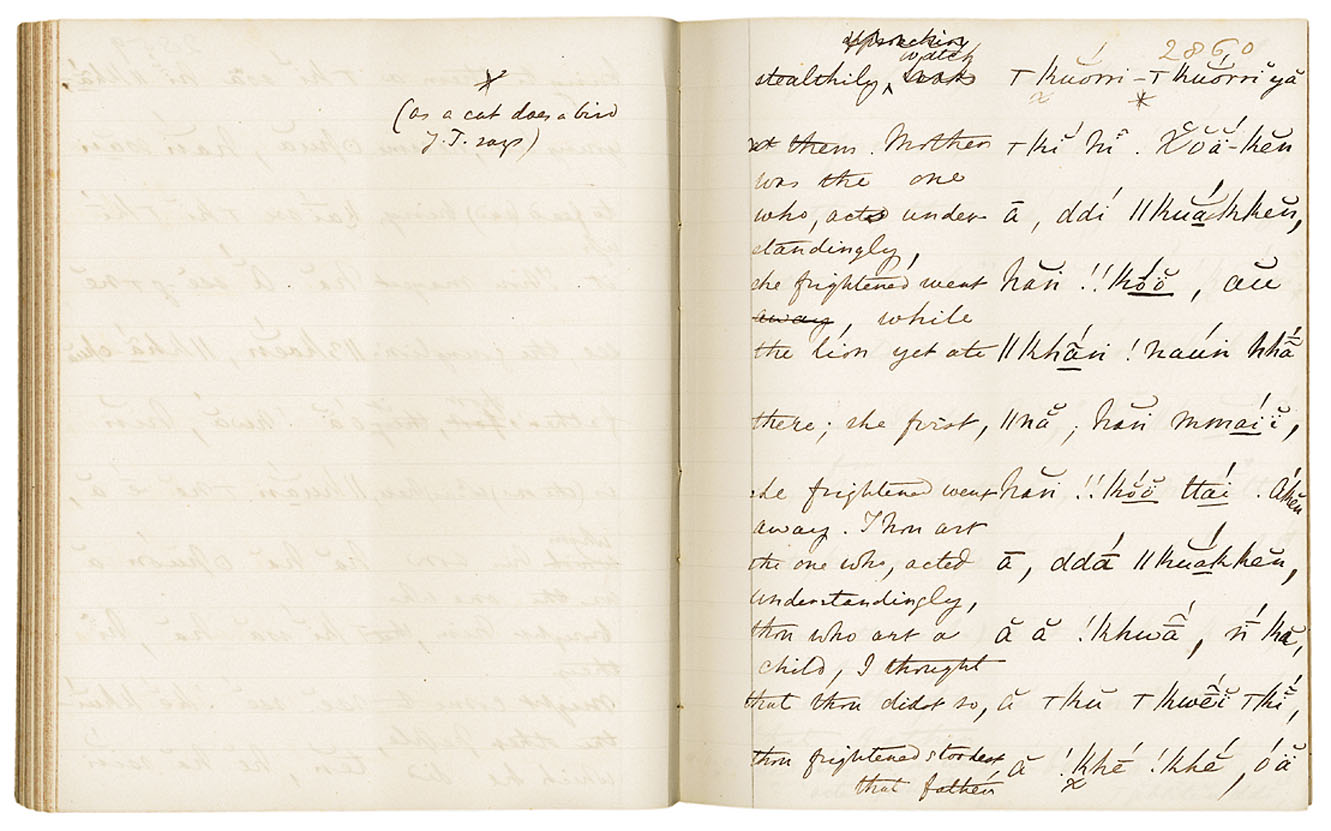 (as a cat does a bird
J.T. says)
2860
approaching
watch
stealthily, ͳ kŭórri–ͳ kŭórri yă
at them. Mother ͳ kĭ hĭ . X̆ŏă-kĕn
was the one
who, acted under- ā , ddí ǁkŭákkĕn,
standingly,
she frightened went hăn !!kŏ́ŏ̤ , aŭ
away, while
the lion yet ate ǁkhā̆n ! naún hhā̆
there; she first, ǁnă , hăn mmaíĭ,
she frightened went hăn !!kŏ́ŏ̤ ttaí . Ákĕn
away. Thou art
the one who, acted ā , ddá ǁkŭákkĕn,
understandingly,
thou who art a ă ă !khwā̃́ , ń kă,
child, I thought
that thou didst so, ă ͳkŭ ͳkwĕ́ĭ ͳkĭ́,
thou frightened stoodest, ă !khé !khĕ́ , óă
that father